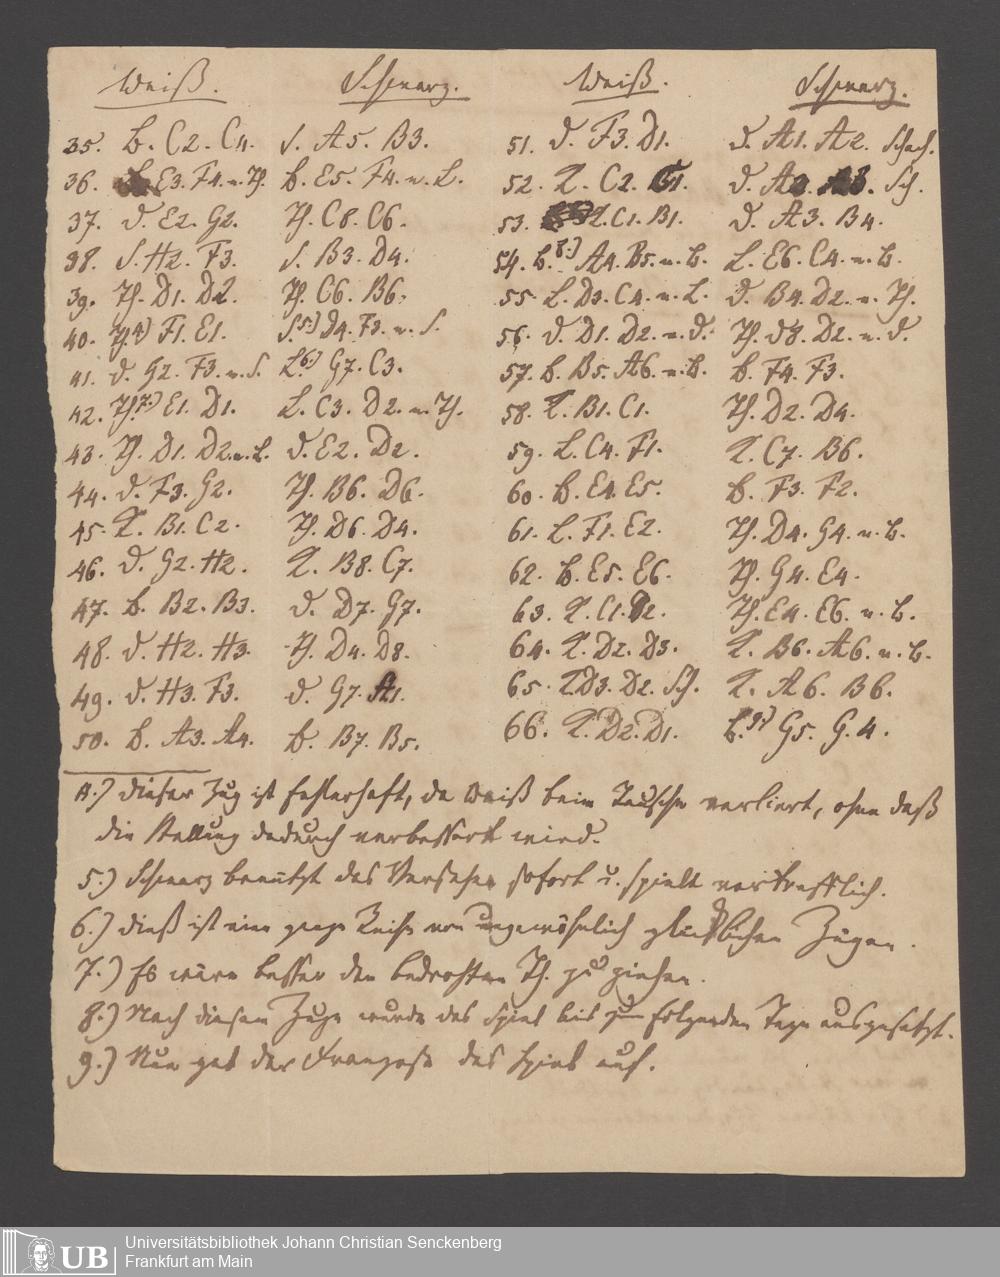 Weiß. Schwarz.
35. B. C2. C4. S. A5. B3.
36. E3. F4. u. Th. B. E5. F4. u. L.
37. D. E2. G2. Th. C8. C6.
38. S. H2. F3. S. B3. D4.
39. Th. D1. D2. Th. C6. B6.
40. Th. 4.) F1. E1. S. 5.) D4. F3. u. S.
41. D. G2. F3. u. S. L. 6.) G7. C3.
42. Th. 7.) E1. D1. L. C3. D2. u. Th.
43. Th. D1. D2. u. L. D. E2. D2.
44. D. F3. G2. Th. B6. D6.
45. K. B1. C2. Th. D6. D4.
46. D. G2. H2. K. B8. C7.
47. B. B2. B3. D. D7. G7.
48. D. H2. H3. Th. D4. D8.
49. D. H3. F3. D. G7. A1.
50. B. A3. A4. B. B7. B5.
Weiß. Schwarz.
51. D. F3. D1. D. A1. A2. Schach.
52. K. C2. C1. D. A2. A3. Sch.
53. K. C1. B1. D. A3. B4.
54. B. 8.) A4. B5. u. B. L. E6. C4. u. B.
55. L. D3. C4. u. L. D. B4. D2. u. Th.
56. D. D1. D2. u. D. Th. D8. D2. u. D.
57. B. B5. A6. u. B. B. F4. F3.
58. K. B1. C1. Th. D2. D4.
59. L. C4. F1. K. C7. B6.
60. B. E4. E5. B. F3. F2.
61. L. F1. E2. Th. D4. G4. u. B.
62. B. E5. E6. Th. G4. E4.
63. K. C1. D2. Th. E4. E6. u. B.
64. K. D2. D3. K. B6. A6. u. B.
65. K D3. D2. Sch. K. A6. B6.
66. K. D2. D1. B. 9.) G5. G.4.
4.) Dieser Zug ist fehlerhaft, da Weiß beim Tausche verliert, ohne daß
die Stellung dadurch verbessert wird.
5.) Schwarz benützt das Versehen sofort u. spielt vortrefflich.
6.) Dieß ist eine ganze Reihe von ungewöhnlich glücklichen Zügen.
7.) Es wäre besser den bedrohten Th. zu ziehen.
8.) Nach diesem Zuge wurde das Spiel bis zum folgenden Tage ausgesetzt.
9.) Nun gab der Franzose das Spiel auf.
UB
Universitätsbibliothek Johann Christian Senckenberg
Frankfurt am Main